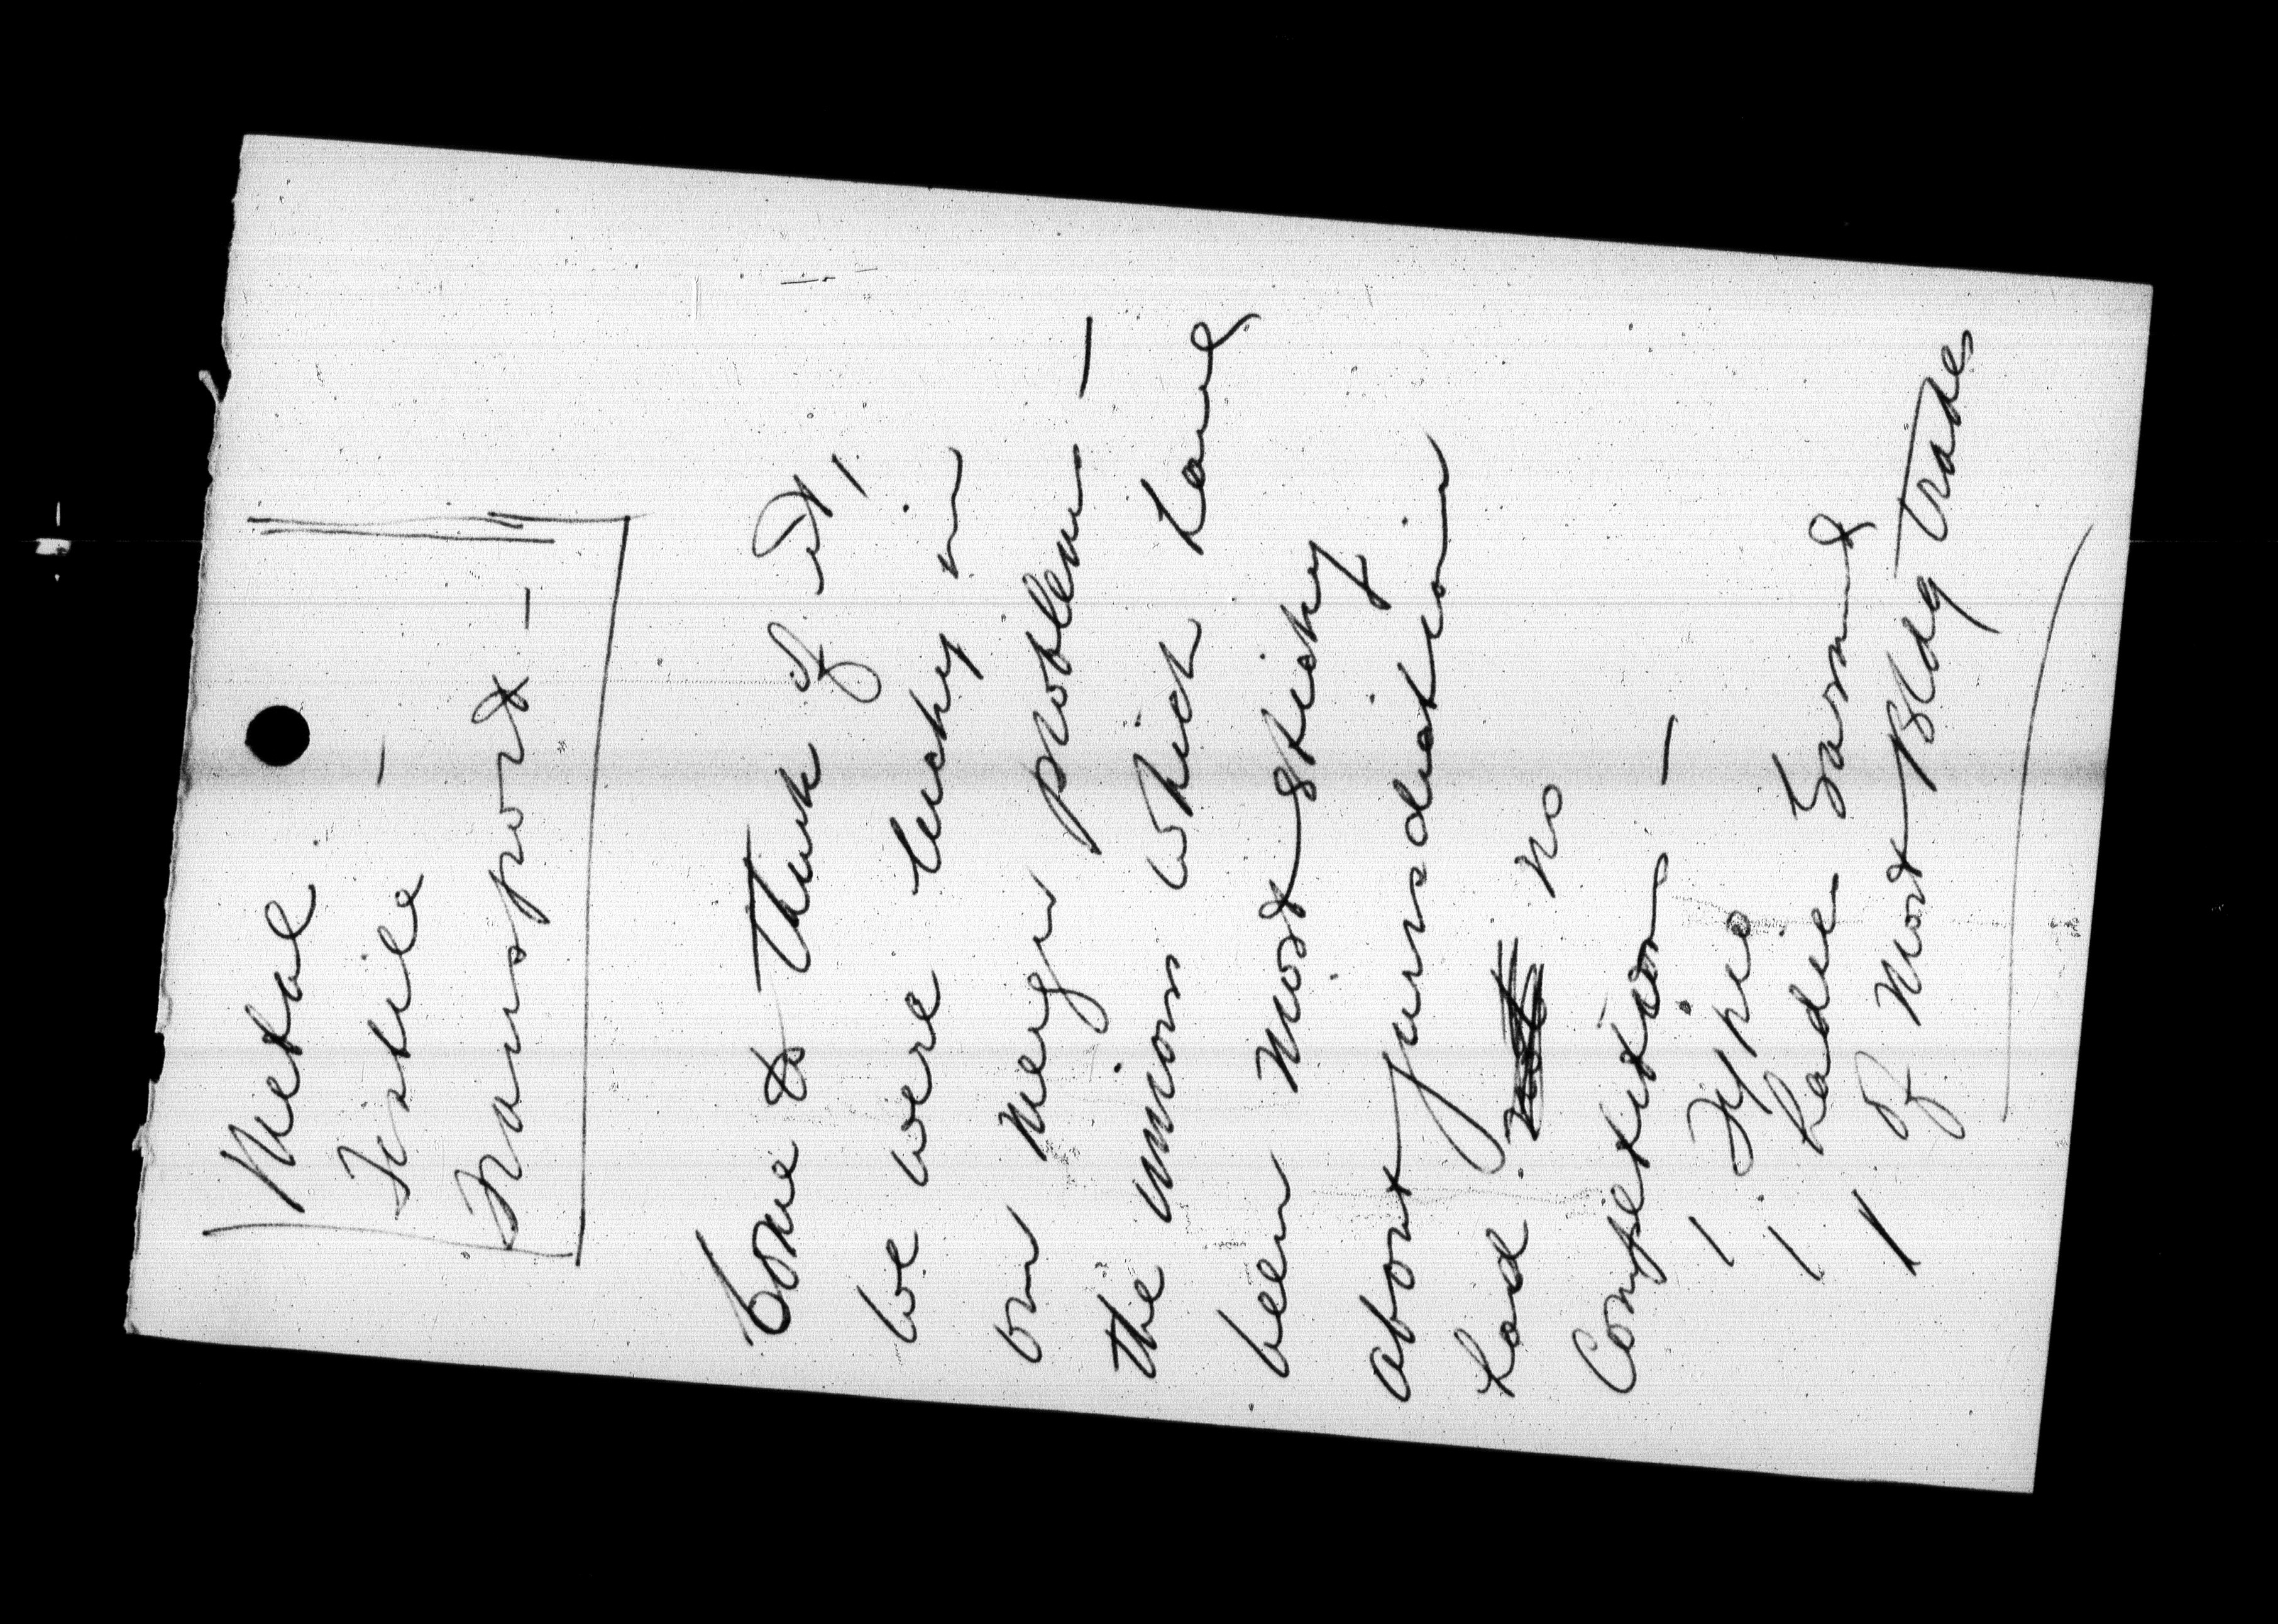 Metal
Textile -
Transport -
Come to think of it!
we were lucky in
our merger problem -
the unions which have
been most sticky
about jurisdiction
had no
Competition -
/ Typo
/ Ladies Garmt
/ & most Bldg Trades